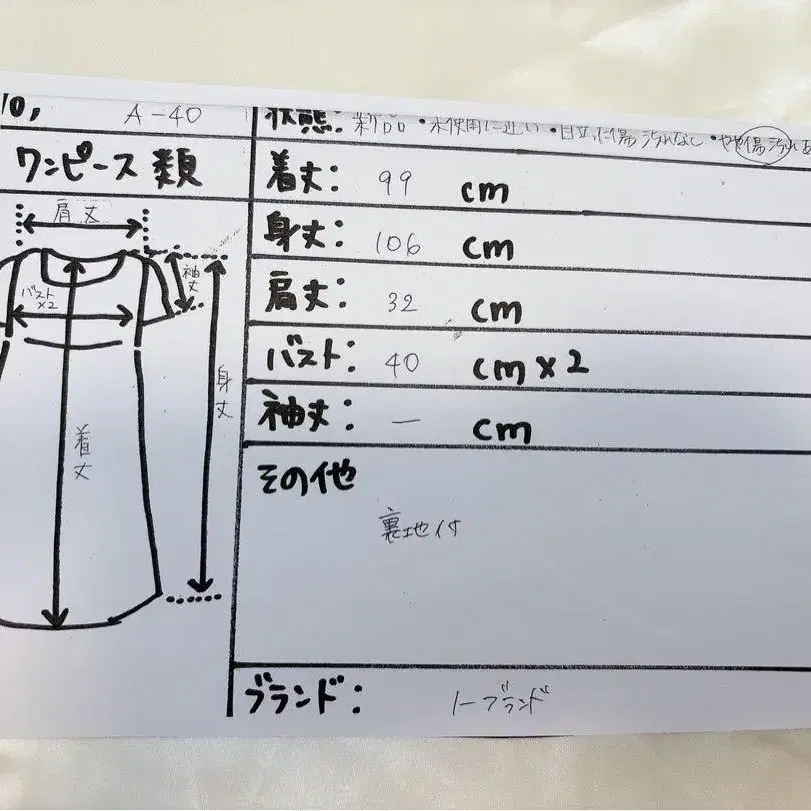 10,
A-40
ワンピース類
肩丈
袖丈
バスト×2
身丈
着丈
状態: 新品・未使用に近い・目立った傷汚れなし・やや傷汚れあ
着丈: 99 cm
身丈: 106 cm
肩丈: 32 cm
バスト: 40 cm×2
袖丈: ー cm
その他
裏地付
ブランド: ノーブランド